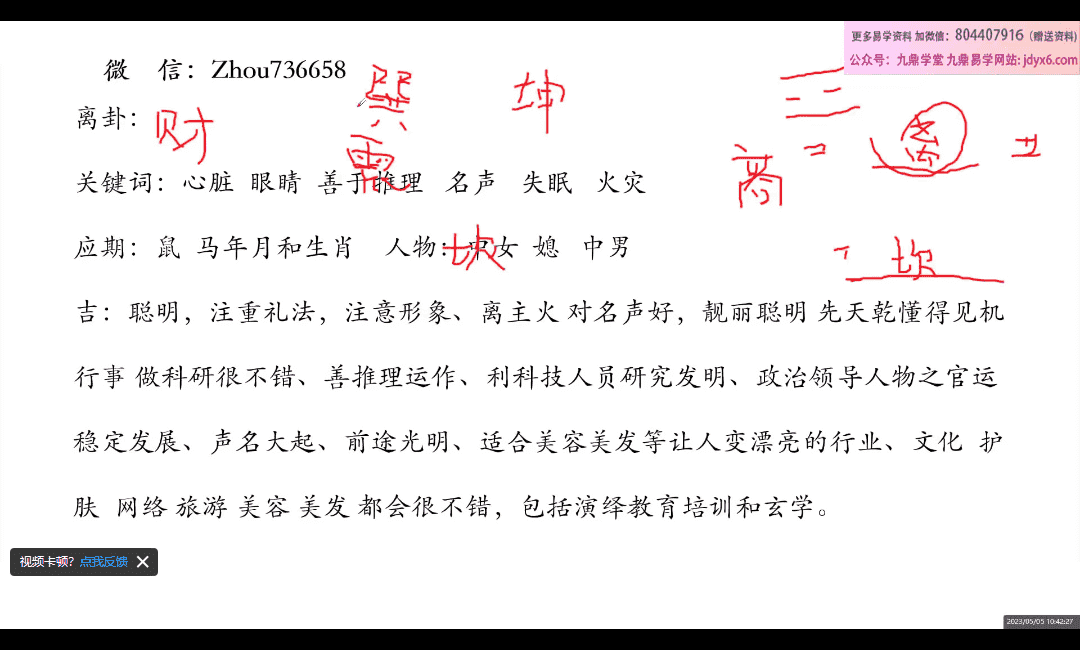 更多易学资料 加微信：804407916（赠送资料）
公众号：九鼎学堂 九鼎易学网站：jdyx6.com
微 信：Zhou736658
巽 坤
离卦：财
震
离
关键词：心脏 眼睛 善于推理 名声 失眠 火灾
应期：鼠 马年月和生肖 人物：中女 媳 中男
坎 坎
吉：聪明，注重礼法，注意形象、离主火 对名声好，靓丽聪明 先天乾懂得见机
行事 做科研很不错、善推理运作、利科技人员研究发明、政治领导人物之官运
稳定发展、声名大起、前途光明、适合美容美发等让人变漂亮的行业、文化 护
肤 网络 旅游 美容 美发 都会很不错，包括演绎教育培训和玄学。
视频卡顿？点我反馈
2023/05/05 10:42:27